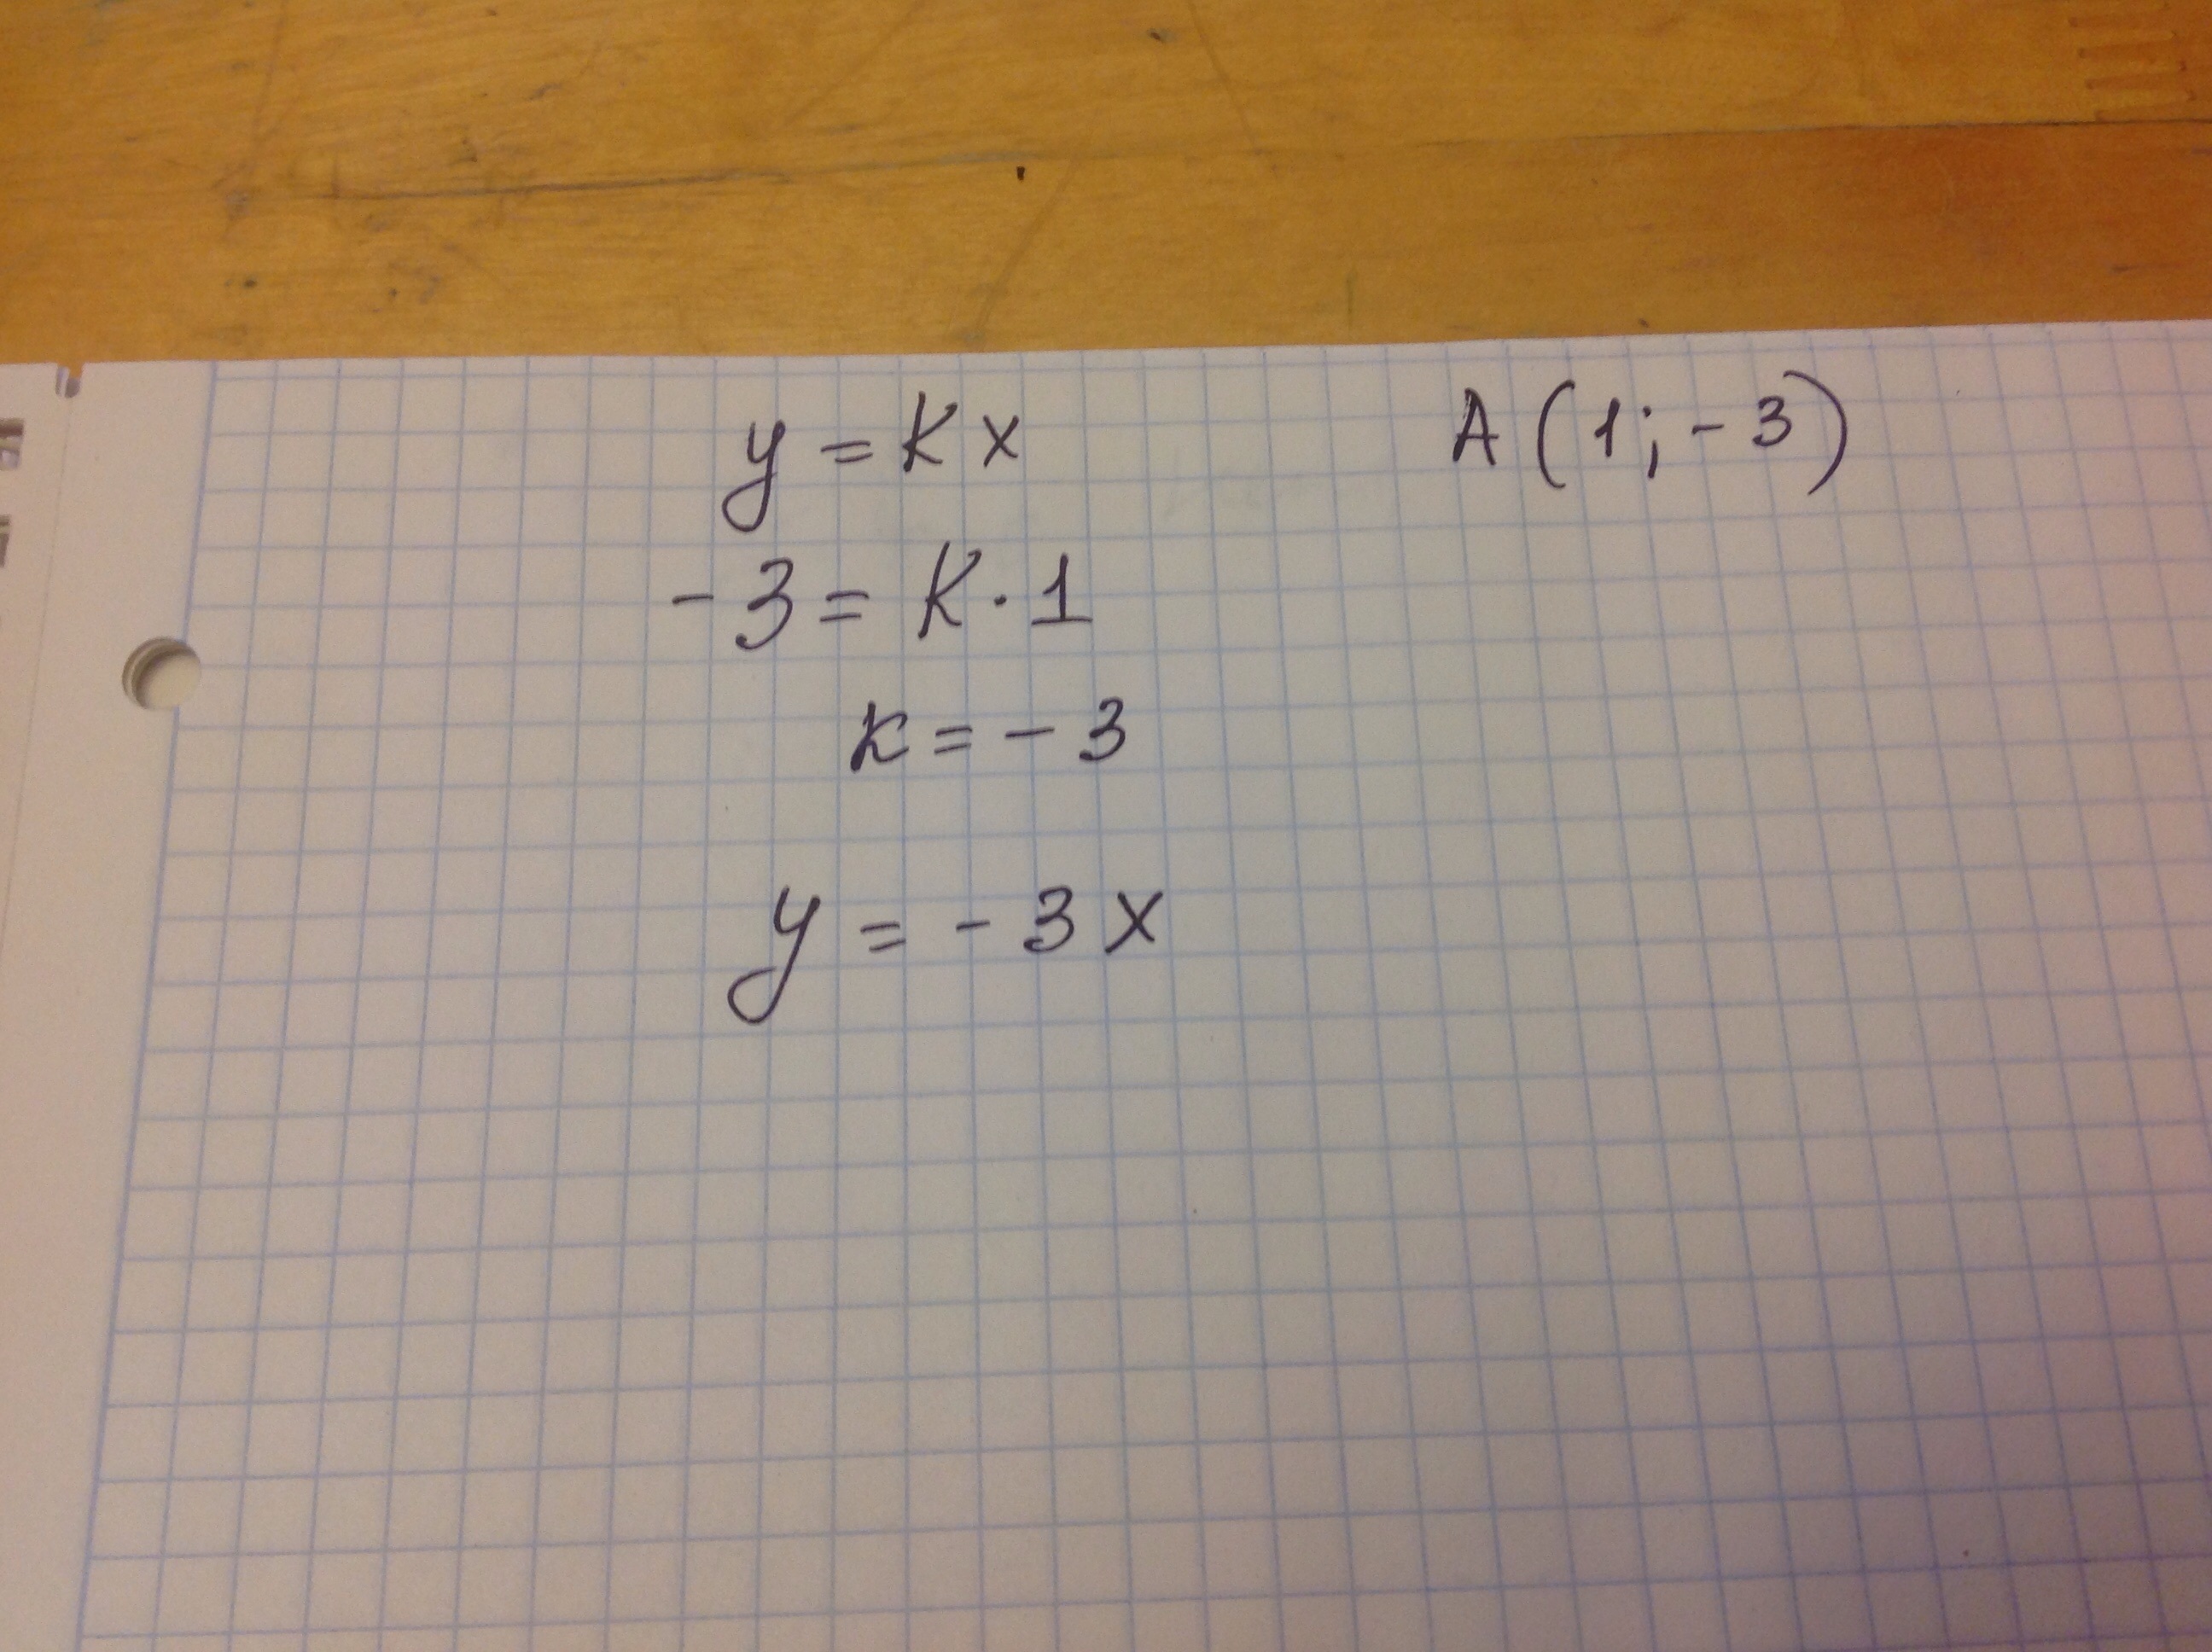 y = kx A (1; -3)
-3 = k · 1
k = -3
y = -3x